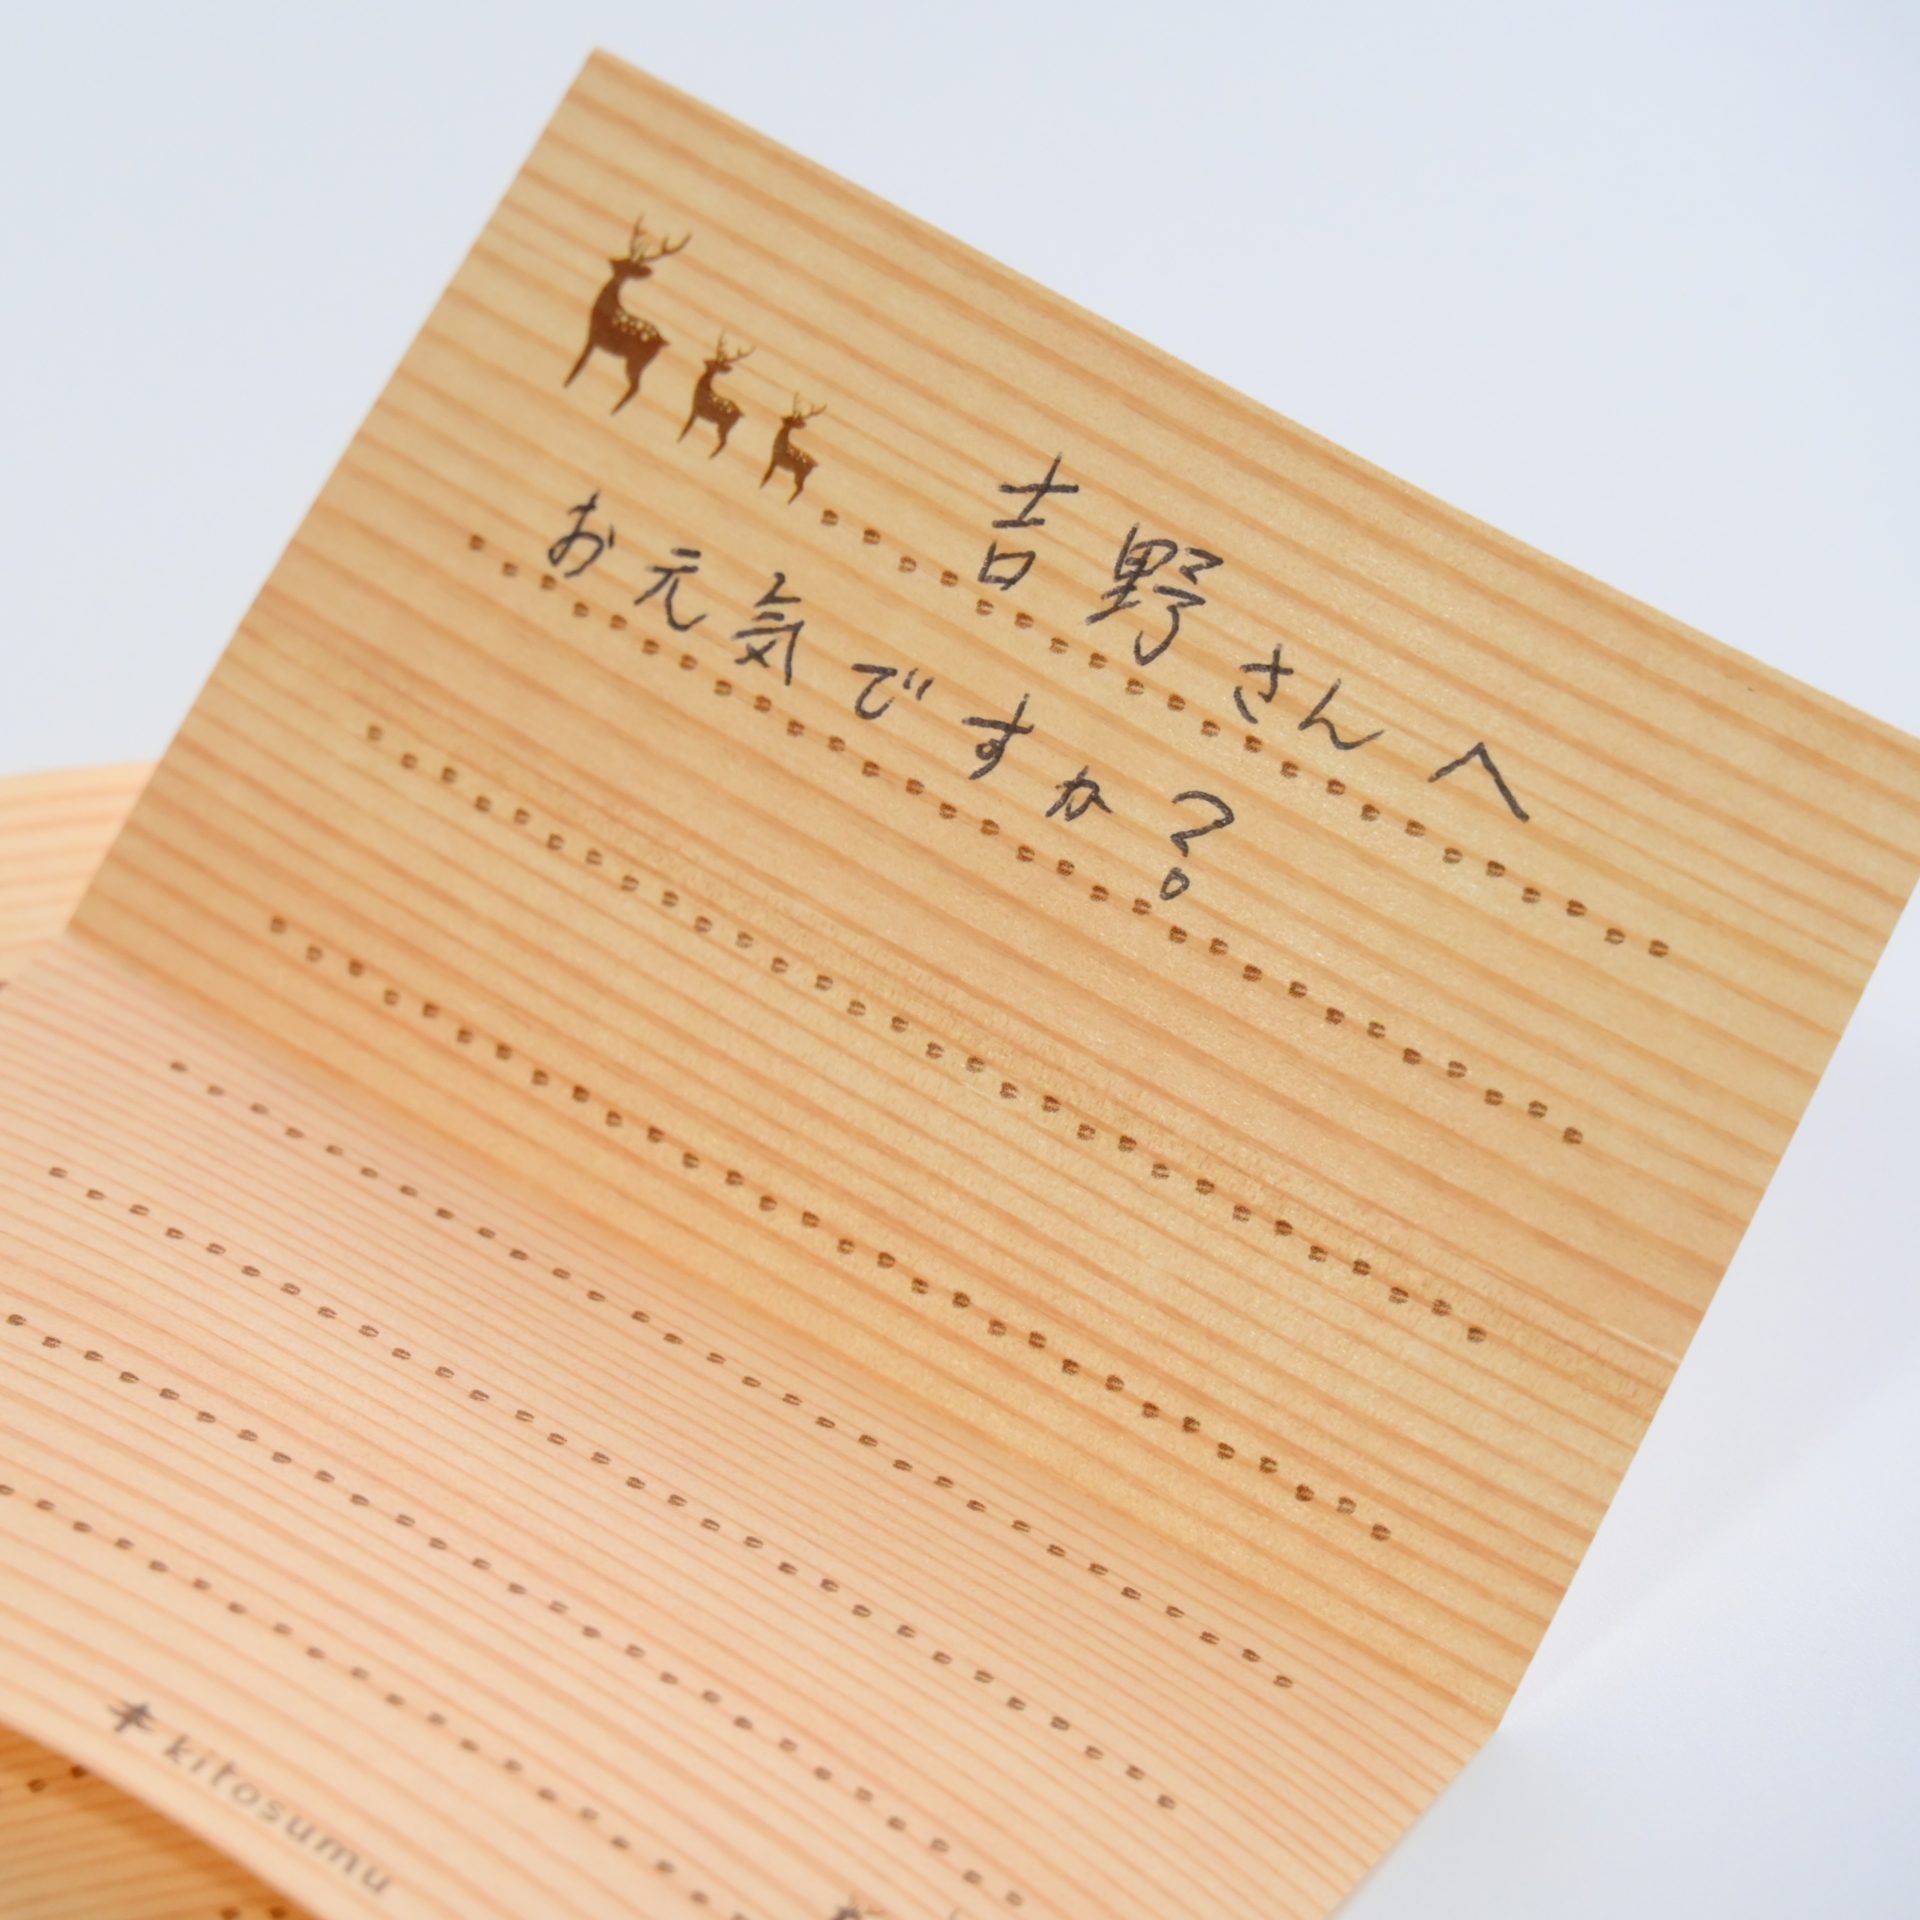 吉野さんへ
お元気ですか?
kitosumu